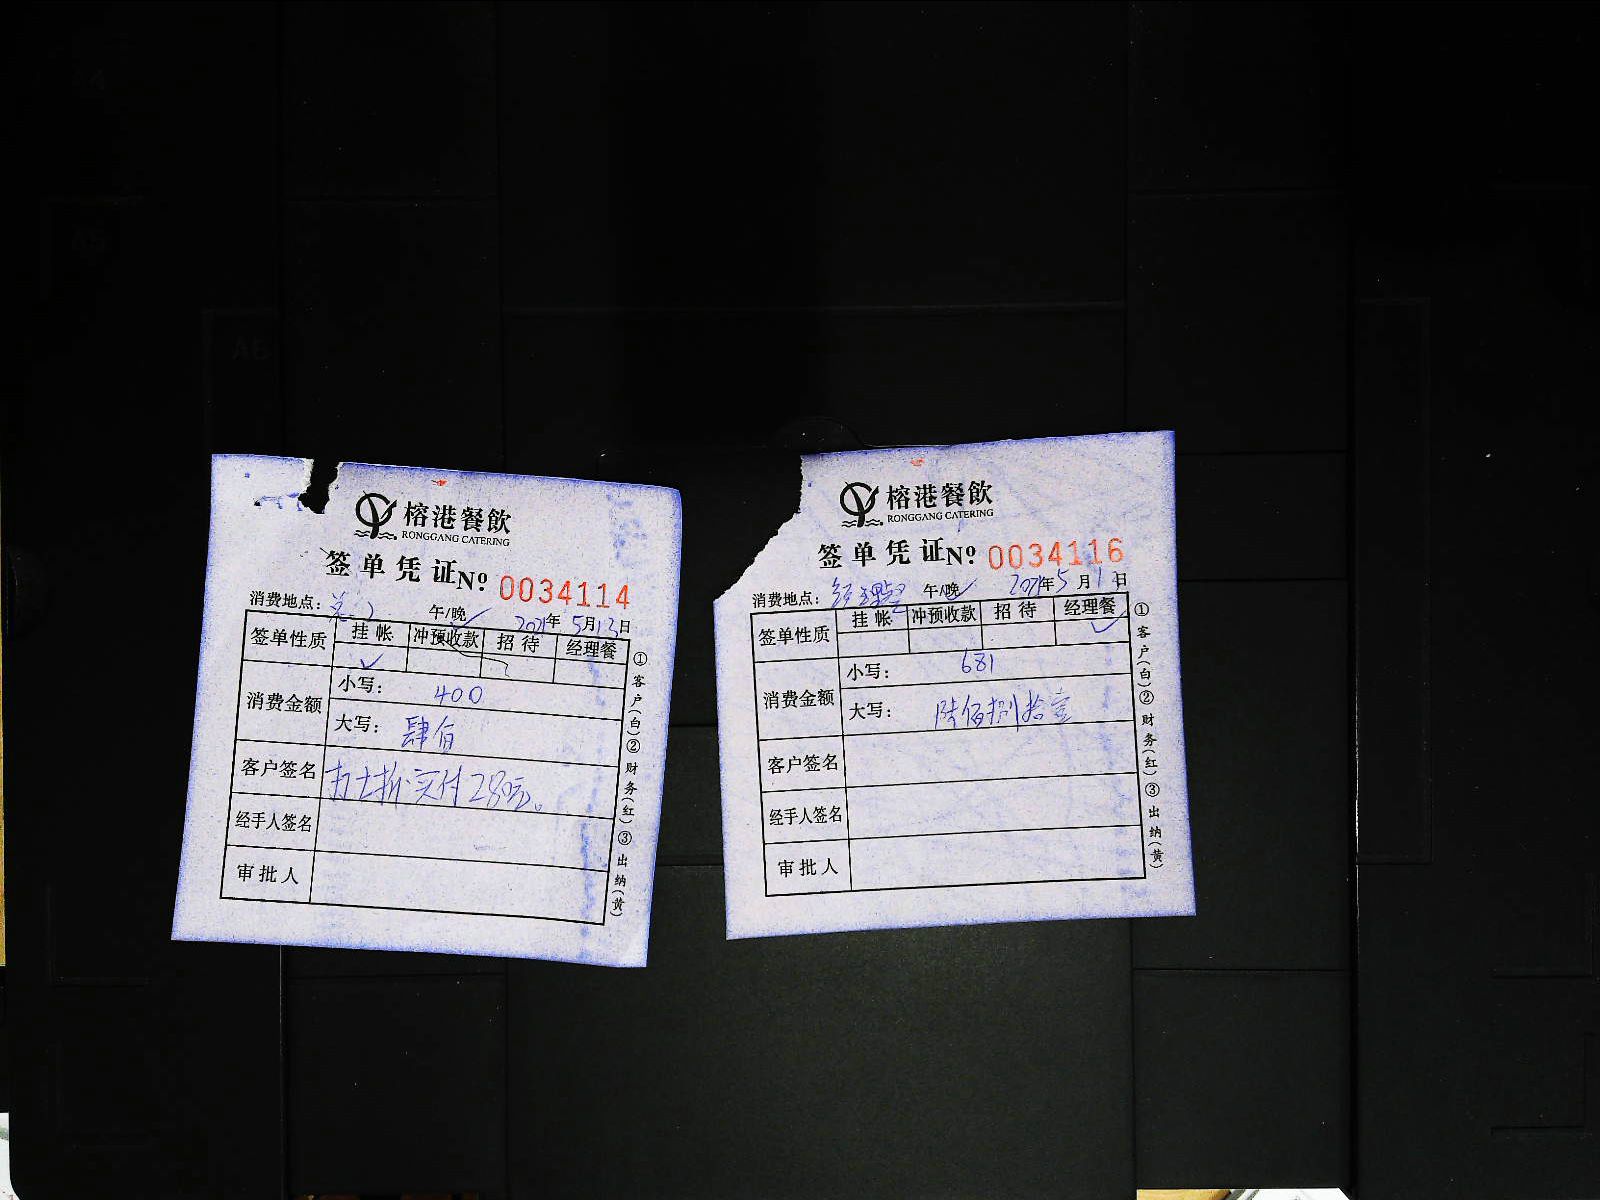 榕港餐飲
RONGGANG CATERING
签单凭证No 0034114
消费地点： 午/晚✓ 2021年5月13日
签单性质 挂帐 冲预收款 招待 经理餐
✓
消费金额 小写： 400
大写： 肆佰
客户签名 打七折.实付280元。
经手人签名
审批人
①客户(白)②财务(红)③出纳(黄)
榕港餐飲
RONGGANG CATERING
签单凭证No 0034116
消费地点： 经理 午/晚✓ 2021年5月1日
签单性质 挂帐 冲预收款 招待 经理餐
✓
消费金额 小写： 681
大写： 陆佰捌拾壹
客户签名
经手人签名
审批人
①客户(白)②财务(红)③出纳(黄)